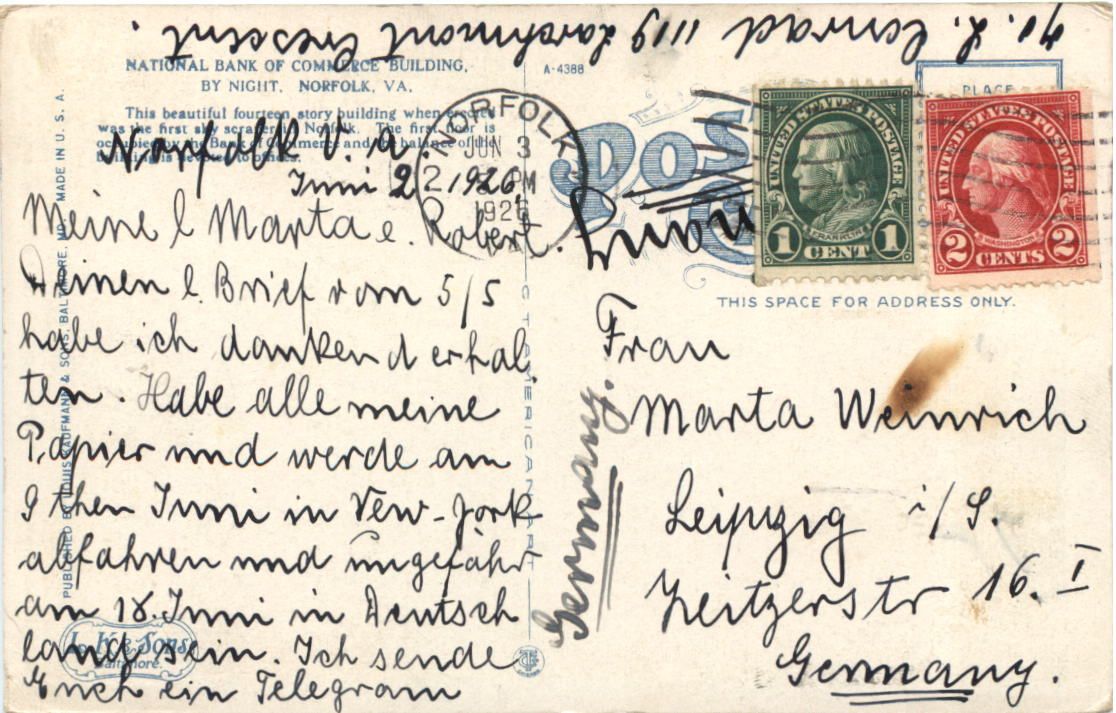 ℅. L. Conrad 1119 Larchmont Crescent.
NATIONAL BANK OF COMMERCE BUILDING,
BY NIGHT, NORFOLK, VA.
This beautiful fourteen story building when erected
was the first sky scraper in Norfolk. The first floor is
occupied by the Bank of Commerce and the balance of the
building is devoted to offices.
A-4388
Norfolk V.a.
Juni 2. 1926.
Meine l Marta e. Robert.
Deinen l. Brief vom 5/5
habe ich dankend erhal
ten. Habe alle meine
Papier und werde am
9 then Juni in New-York
abfahren und ungefähr
am 18. Juni in Deutsch
land sein. Ich sende
Euch ein Telegram
NORFOLK
JUN 3
PM
1926
VA.
POST
PLACE
UNITED STATES POSTAGE
FRANKLIN
1 CENT 1
UNITED STATES POSTAGE
WASHINGTON
2 CENTS 2
THIS SPACE FOR ADDRESS ONLY.
Frau
Marta Weinrich
Leipzig i/S.
Zeitzerstr 16. I
Germany.
Germany.
PUBLISHED BY LOUIS KAUFMANN & SONS, BALTIMORE, MD. MADE IN U. S. A.
L. K. & Sons
Baltimore.